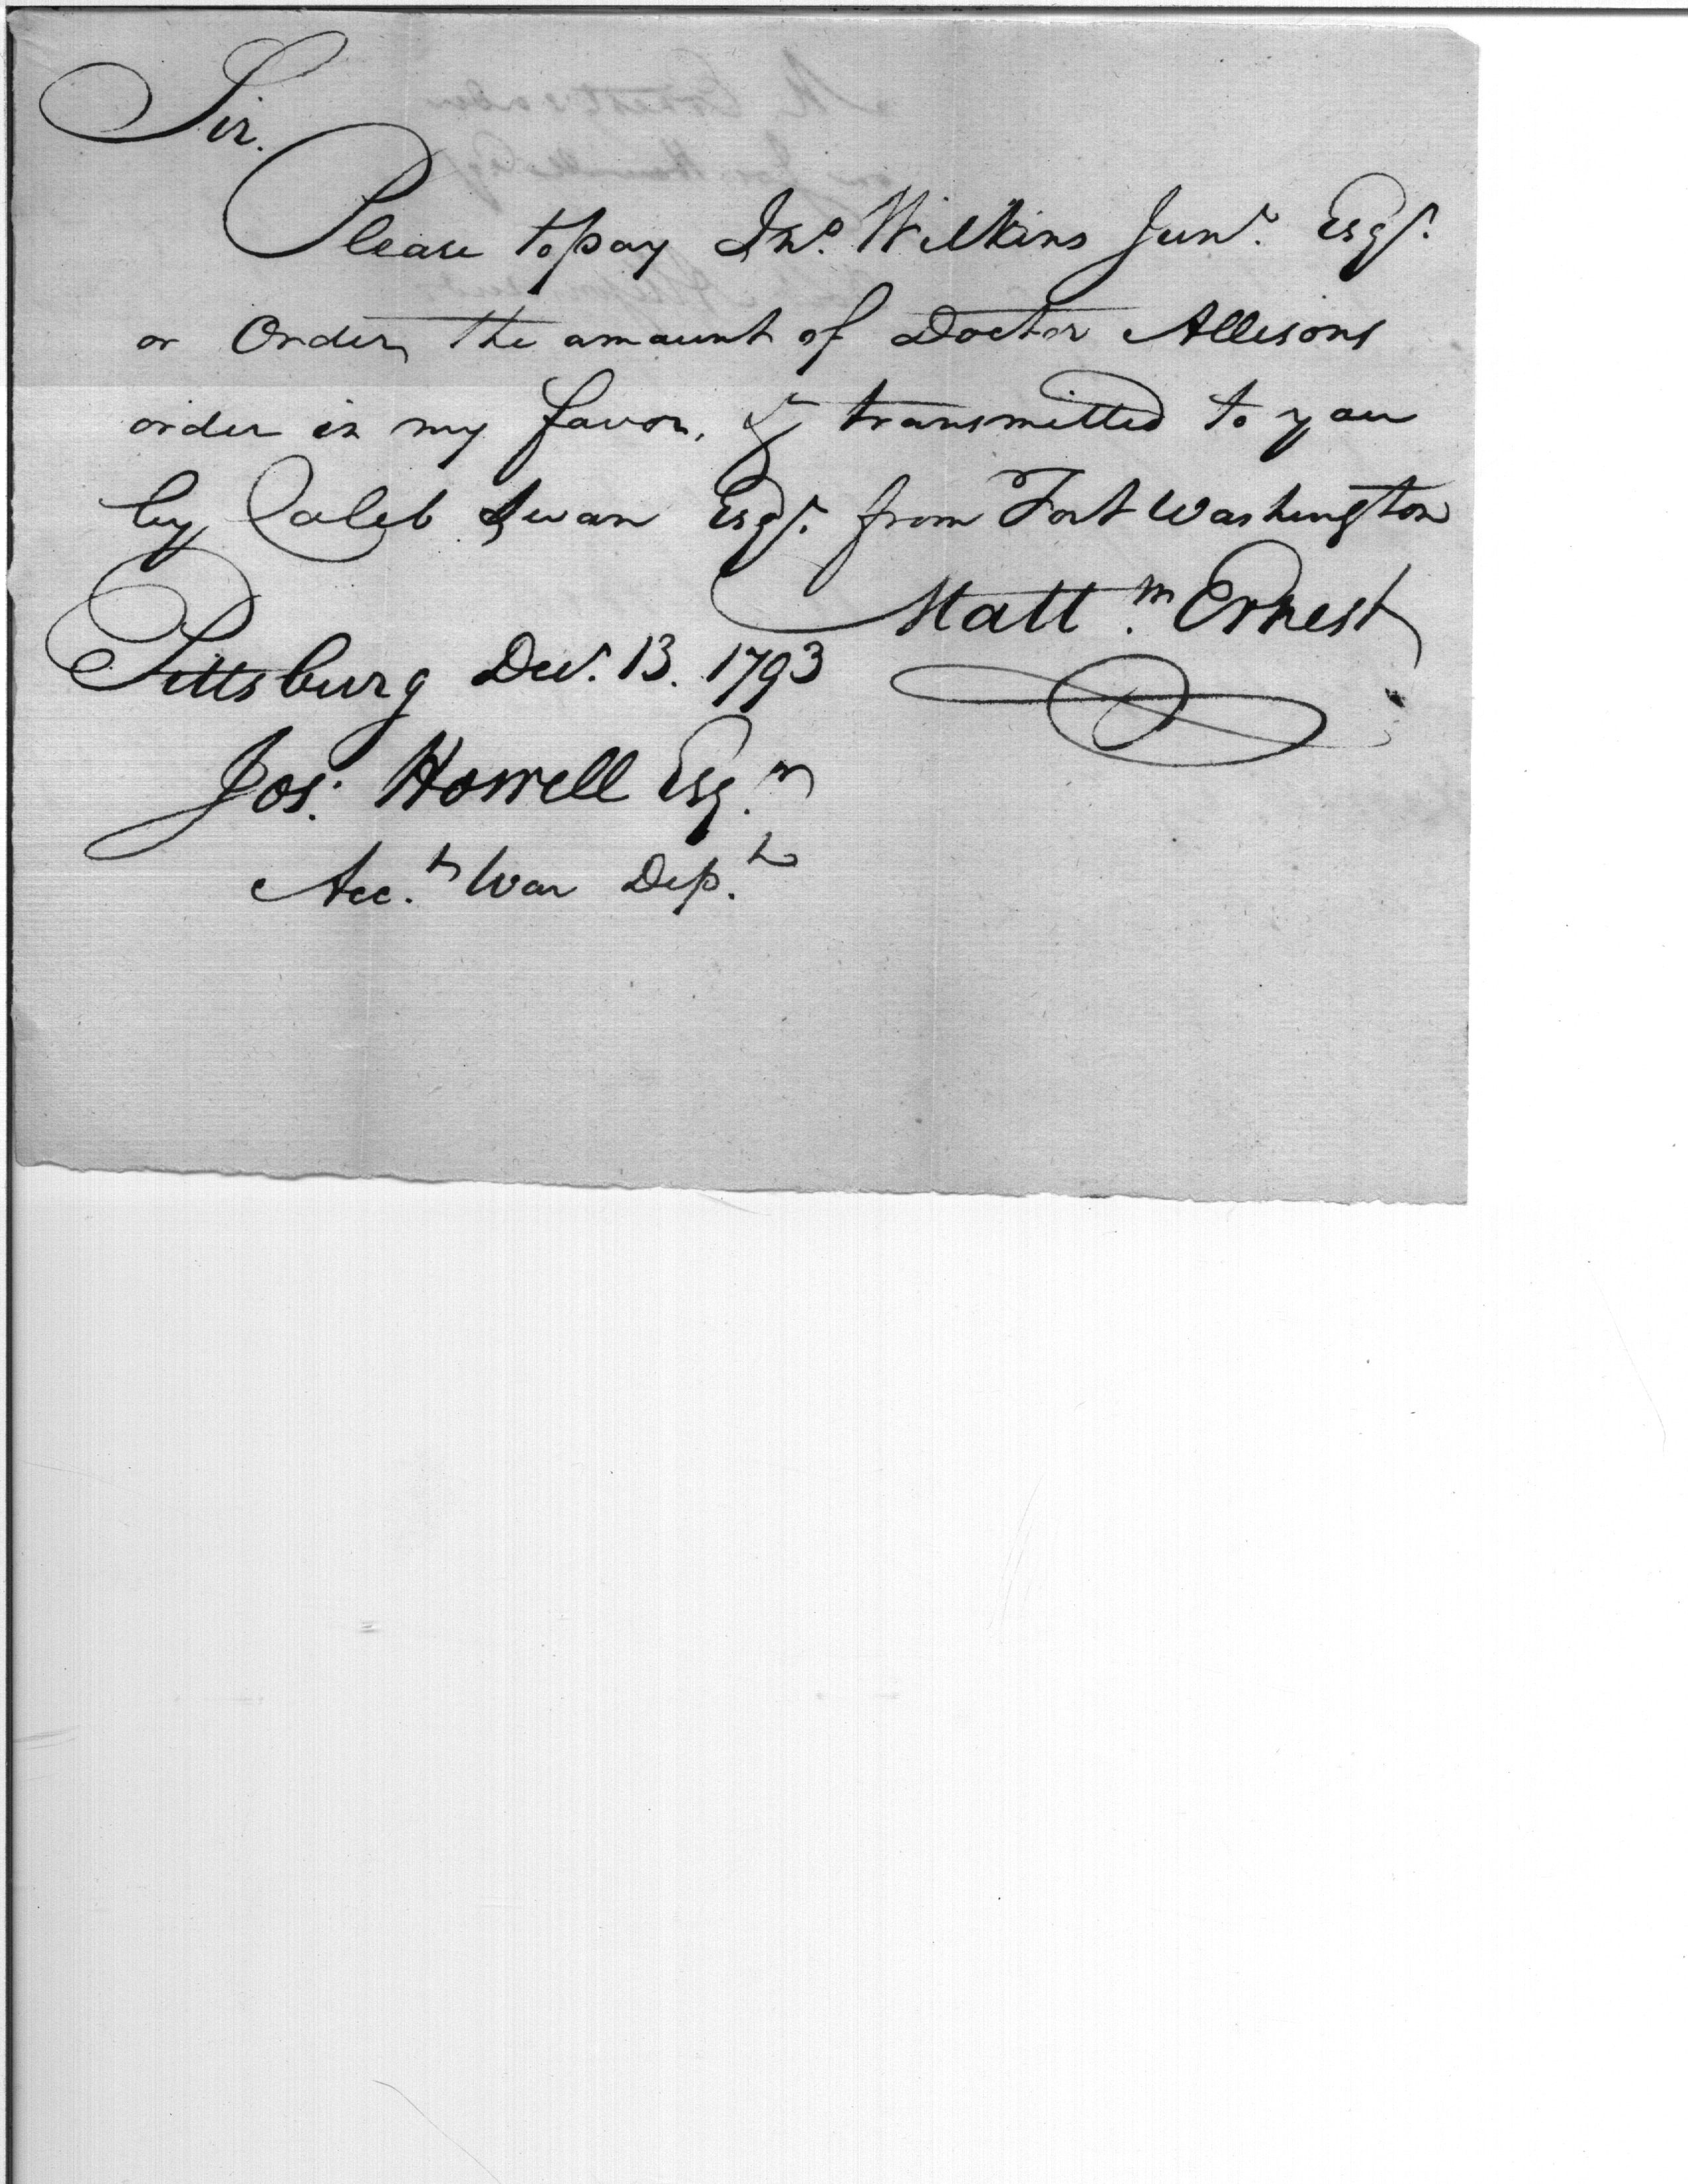 Sir.
Please to pay Jno. Wilkins Junr. Esqr.
or Order, the amount of Doctor Allisons
order in my favor, & transmitted to you
by Caleb Swan Esqr. from Fort Washington
Mattw. Ernest
Pittsburg Decr. 13. 1793
Jos: Howell Esqr.
Acct. War Dept.